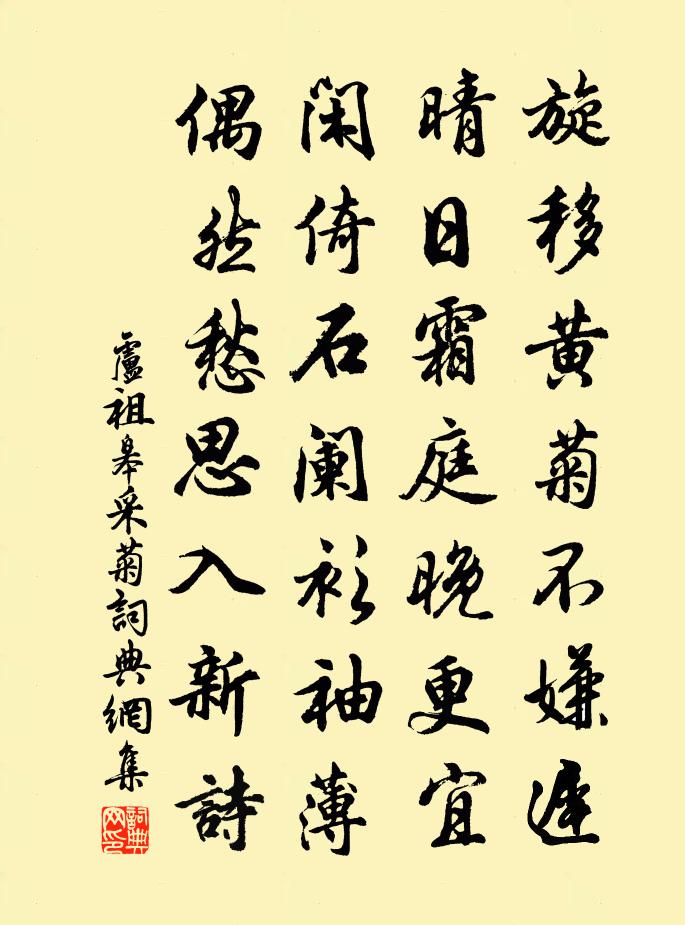 旋移黄菊不嫌遲
晴日霜庭晚更宜
閑倚石闌衫袖薄
偶然愁思入新詩
盧祖皋采菊詞典網集
詞典网印